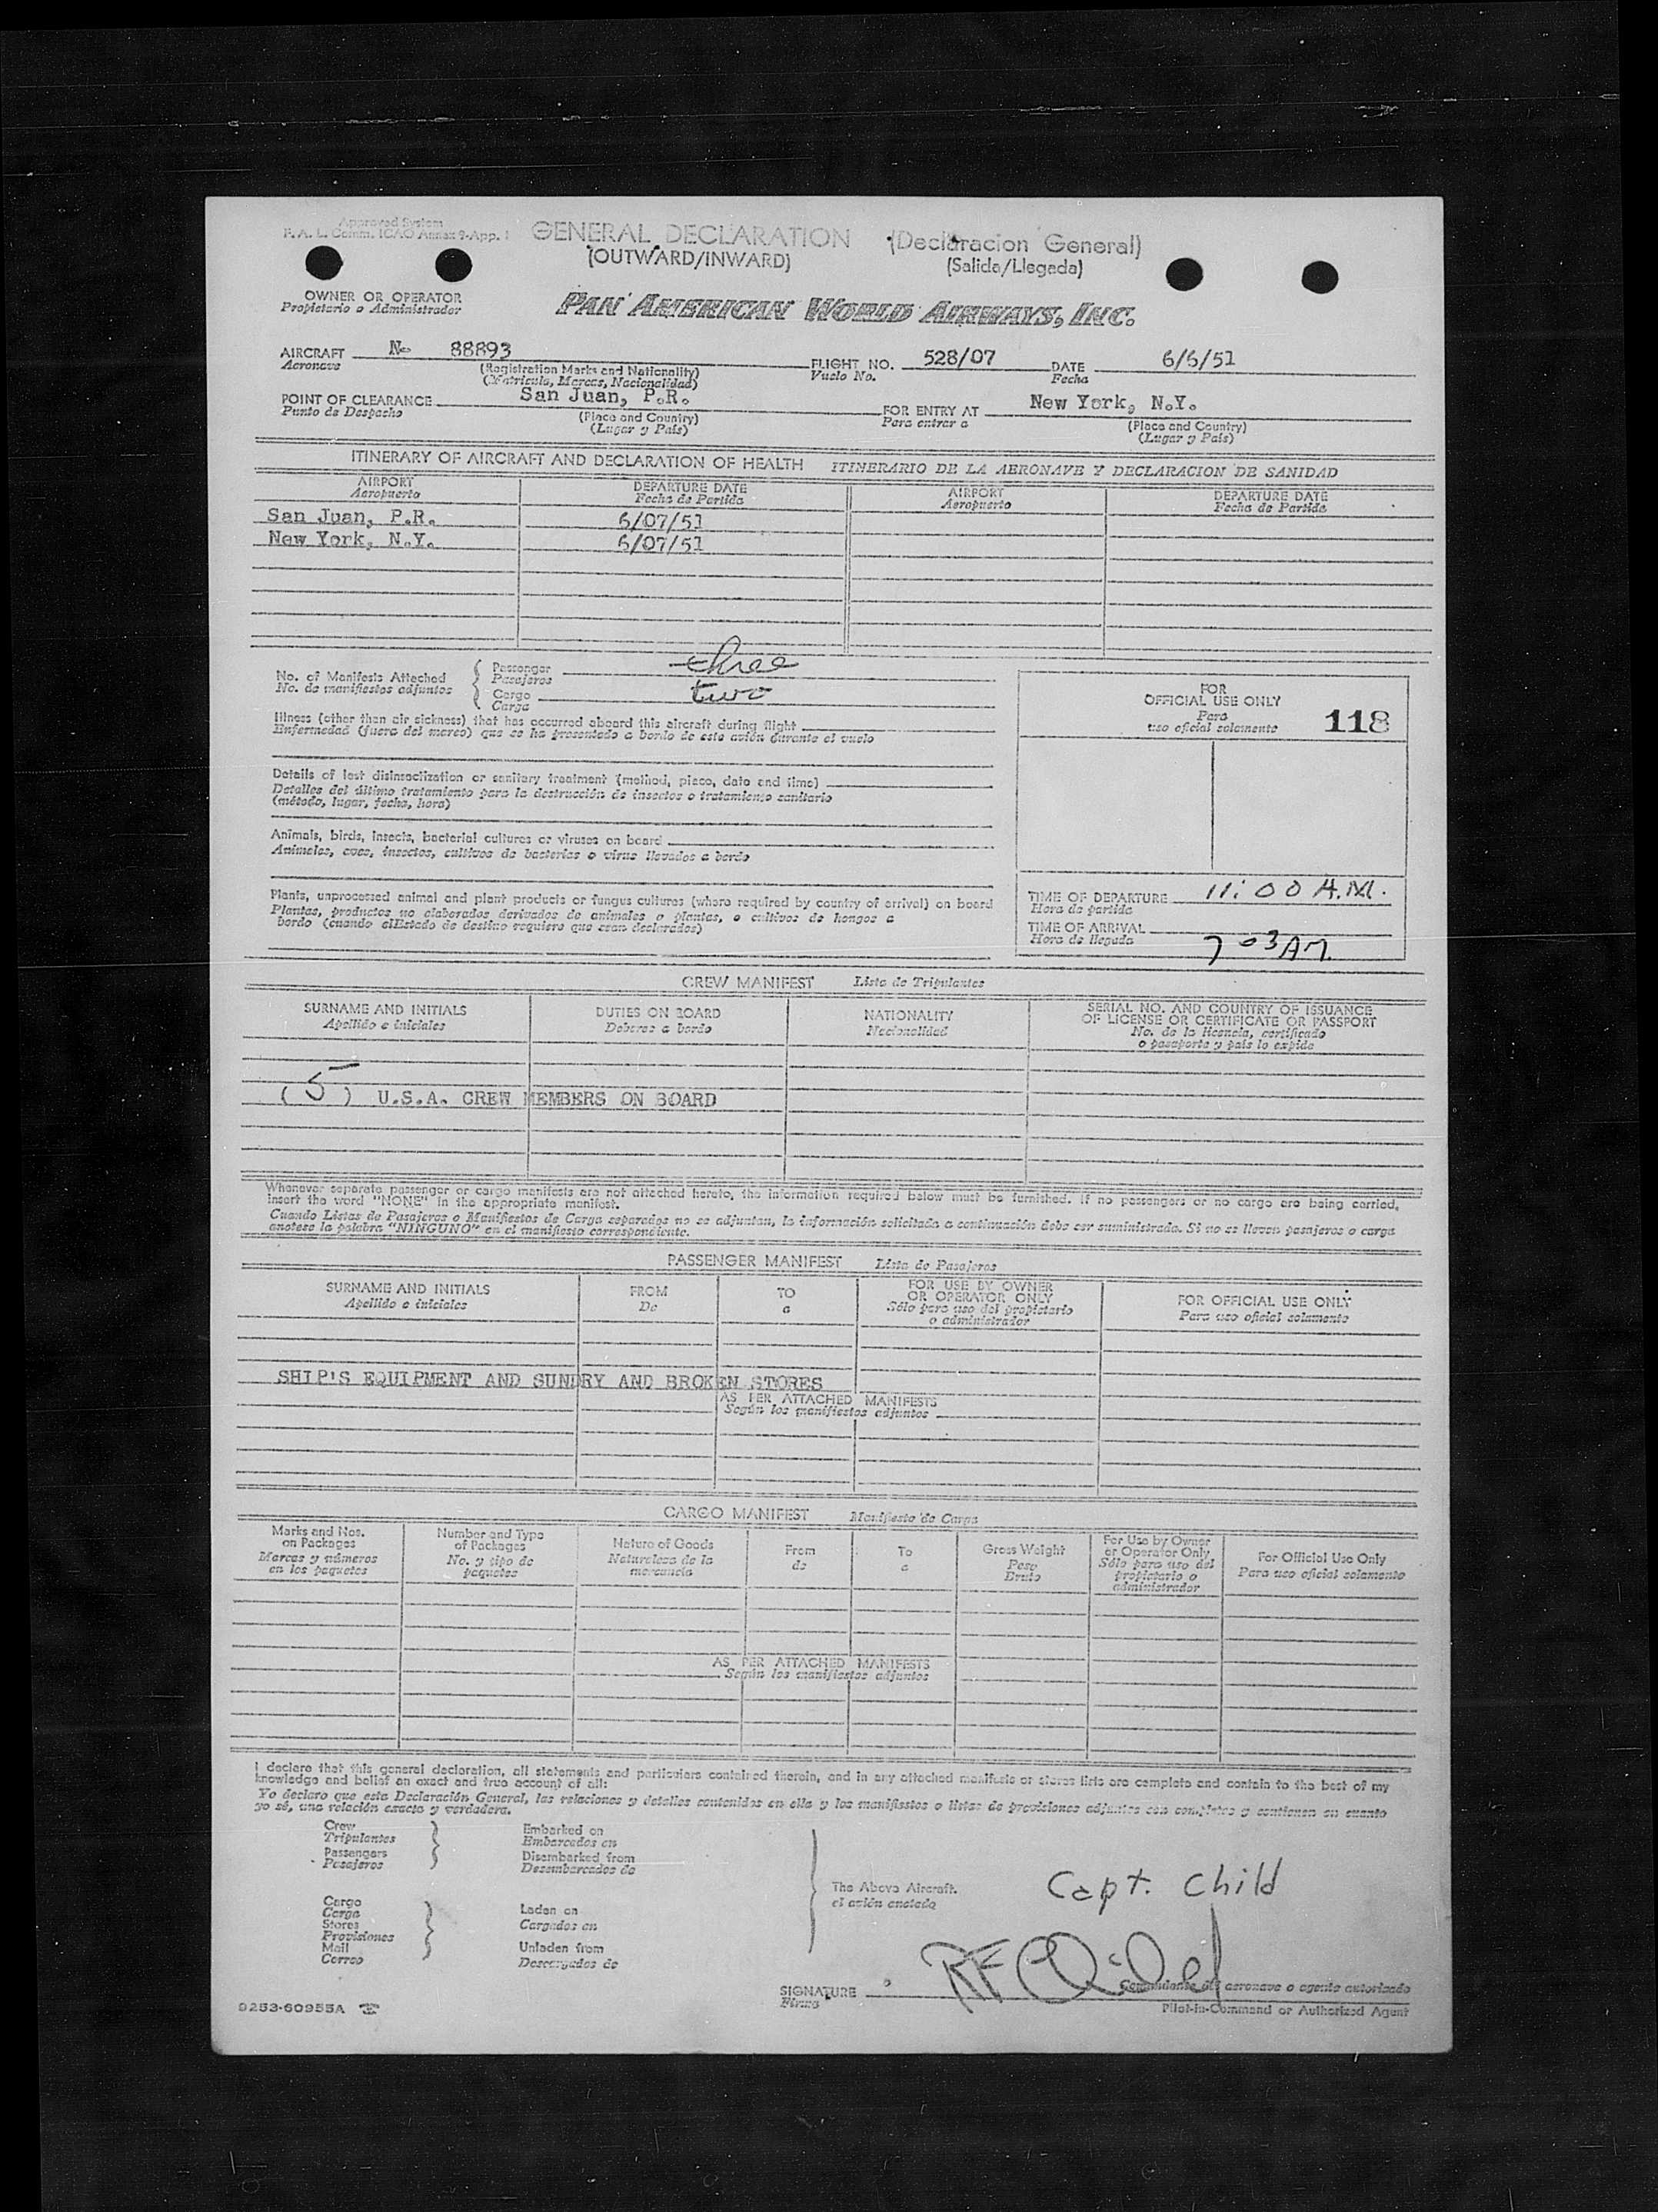 Approved System
F. A. L. Comm. ICAO Annex 9-App. 1
GENERAL DECLARATION (Declaracion General)
(OUTWARD/INWARD) (Salida/Llegada)
OWNER OR OPERATOR
Propietario o Administrador
PAN AMERICAN WORLD AIRWAYS, INC.
AIRCRAFT No 88893 FLIGHT NO. 528/07 DATE 6/6/51
Aeronave (Registration Marks and Nationality) Vuelo No. Fecha
(Matricula, Marcas, Nacionalidad)
POINT OF CLEARANCE San Juan, P.R. FOR ENTRY AT New York, N.Y.
Punto de Despacho (Place and Country) Para entrar a (Place and Country)
(Lugar y País) (Lugar y País)
ITINERARY OF AIRCRAFT AND DECLARATION OF HEALTH ITINERARIO DE LA AERONAVE Y DECLARACION DE SANIDAD
AIRPORT DEPARTURE DATE AIRPORT DEPARTURE DATE
Aeropuerto Fecha de Partida Aeropuerto Fecha de Partida
San Juan, P.R. 6/07/51
New York, N.Y. 6/07/51
No. of Manifests Attached Passenger three
No. de manifiestos adjuntos Pasajeros
Cargo two
Carga
FOR
OFFICIAL USE ONLY
Para
uso oficial solamente 118
Illness (other than air sickness) that has occurred aboard this aircraft during flight
Enfermedad (fuera del mareo) que se ha presentado a bordo de este avión durante el vuelo
Details of last disinsectization or sanitary treatment (method, place, date and time)
Detalles del último tratamiento para la destrucción de insectos o tratamiento sanitario
(método, lugar, fecha, hora)
Animals, birds, insects, bacterial cultures or viruses on board
Animales, aves, insectos, cultivos de bacterias o virus llevados a bordo
Plants, unprocessed animal and plant products or fungus cultures (where required by country of arrival) on board
Plantas, productos no elaborados derivados de animales o plantas, o cultivos de hongos a
bordo (cuando elEstado de destino requiera que sean declarados)
TIME OF DEPARTURE 11:00 A.M.
Hora de partida
TIME OF ARRIVAL
Hora de llegada 7 03 AM
CREW MANIFEST Lista de Tripulantes
SURNAME AND INITIALS DUTIES ON BOARD NATIONALITY SERIAL NO. AND COUNTRY OF ISSUANCE
OF LICENSE OR CERTIFICATE OR PASSPORT
Apellido e iniciales Deberes a bordo Nacionalidad No. de la licencia, certificado
o pasaporte y país lo expide
( 5 ) U.S.A. CREW MEMBERS ON BOARD
Whenever separate passenger or cargo manifests are not attached hereto, the information required below must be furnished. If no passengers or no cargo are being carried,
insert the word "NONE" in the appropriate manifest.
Cuando Listas de Pasajeros o Manifiestos de Carga separados no se adjuntan, la información solicitada a continuación debe ser suministrada. Si no se llevan pasajeros o carga
anotese la palabra "NINGUNO" en el manifiesto correspondiente.
PASSENGER MANIFEST Lista de Pasajeros
SURNAME AND INITIALS FROM TO FOR USE BY OWNER
OR OPERATOR ONLY FOR OFFICIAL USE ONLY
Apellido e iniciales De a Sólo para uso del propietario
o administrador Para uso oficial solamente
SHIP'S EQUIPMENT AND SUNDRY AND BROKEN STORES
AS PER ATTACHED MANIFESTS
Según los manifiestos adjuntos
CARGO MANIFEST Manifiesto de Carga
Marks and Nos.
on Packages
Marcas y números
en los paquetes
Number and Type
of Packages
No. y tipo de
paquetes
Nature of Goods
Naturaleza de la
mercancia
From
de
To
a
Gross Weight
Peso
Bruto
For Use by Owner
or Operator Only
Sólo para uso del
propietario o
administrador
For Official Use Only
Para uso oficial solamente
AS PER ATTACHED MANIFESTS
Según los manifiestos adjuntos
I declare that this general declaration, all statements and particulars contained therein, and in any attached manifests or stores lists are complete and contain to the best of my
knowledge and belief an exact and true account of all:
Yo declaro que esta Declaración General, las relaciones y detalles contenidos en ella y los manifiestos o listas de provisiones adjuntos son completos y contienen en cuanto
yo sé, una relación exacta y verdadera.
Crew Embarked on
Tripulantes Embarcados en
Passengers Disembarked from
Pasajeros Desembarcados de
The Above Aircraft.
el avión anotado
Capt. Child
Cargo
Carga Laden on
Stores Cargados en
Provisiones
Mail Unladen from
Correo Descargados de
SIGNATURE RF Child
Firma Comandante de aeronave o agente autorizado
Pilot-in-Command or Authorized Agent
9253-60955A